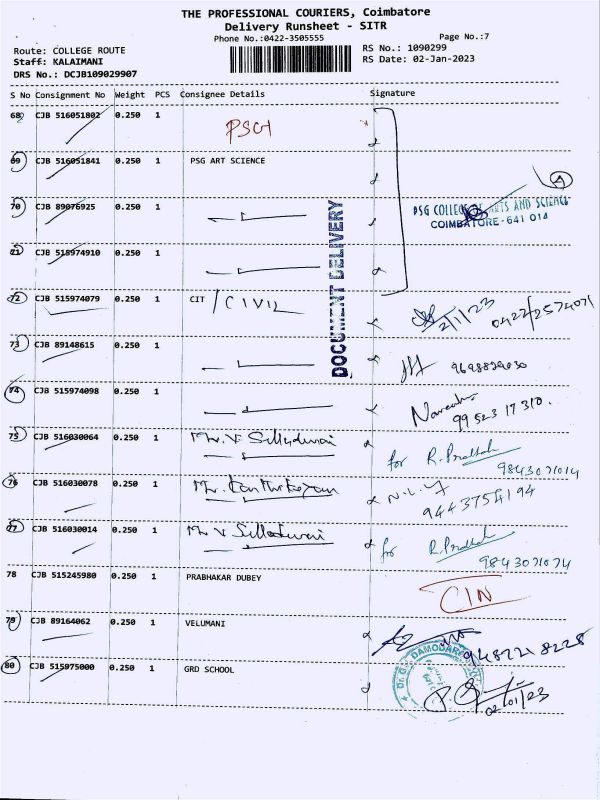 THE PROFESSIONAL COURIERS, Coimbatore
Delivery Runsheet - SITR
Phone No.:0422-3505555 Page No.:7
Route: COLLEGE ROUTE RS No.: 1090299
Staff: KALAIMANI RS Date: 02-Jan-2023
DRS No.: DCJB109029907
S No Consignment No Weight PCS Consignee Details Signature
68 CJB 516051802 0.250 1 PSG
69 CJB 516051841 0.250 1 PSG ART SCIENCE
70 CJB 89076925 0.250 1
PSG COLLEGE OF ARTS AND SCIENCE
COIMBATORE-641 014
71 CJB 515974910 0.250 1
DOCUMENT DELIVERY
72 CJB 515974079 0.250 1 CIT / CIVIL 2/1/23 0422/2574071
73 CJB 89148615 0.250 1
74 CJB 515974098 0.250 1 99523 17310.
75 CJB 516030064 0.250 1 for R. 9843071014
76 CJB 516030078 0.250 1 9443754194
77 CJB 516030014 0.250 1 for 9843071074
78 CJB 515245980 0.250 1 PRABHAKAR DUBEY CIN
79 CJB 89164062 0.250 1 VELUMANI 948221 8228
80 CJB 515975000 0.250 1 GRD SCHOOL 02/01/23
DAMODARAN